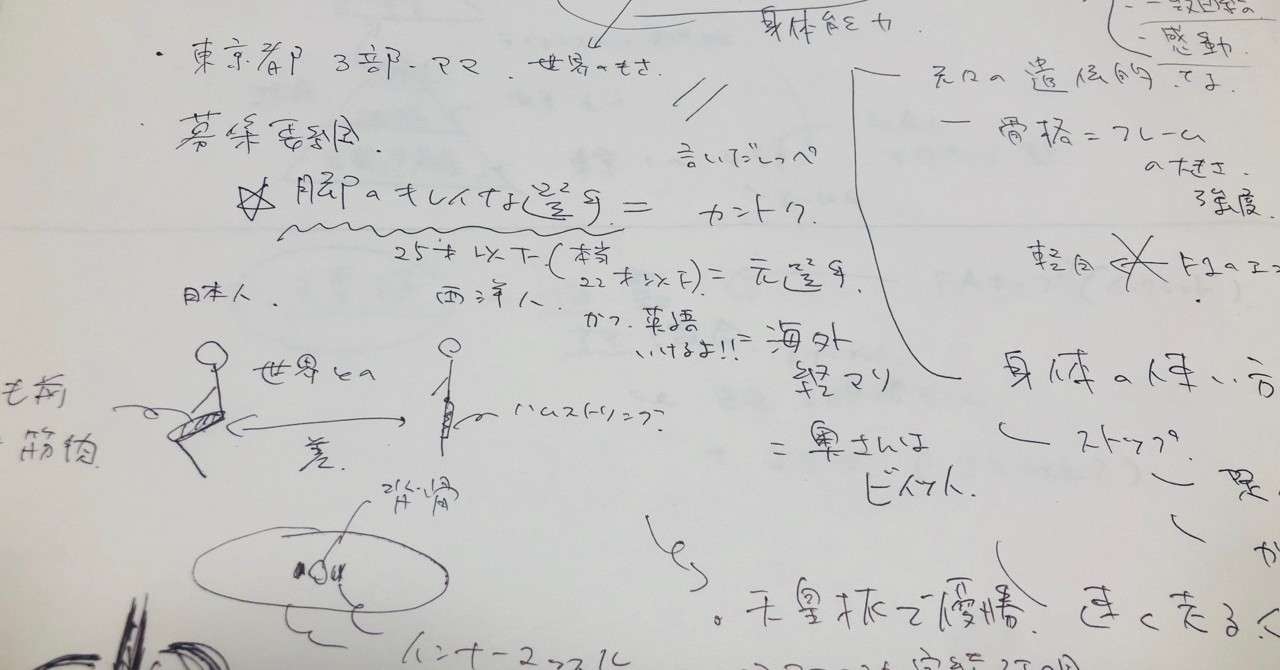 身体能力
感動
・東京都 3部 - ママ . 世界のもさ.
元々の遺伝的
・募集要項.
骨格=フレーム
の大きさ.
強度.
言いだしっぺ
☆ 脚のキレイな選手 = カントク.
25才以下 (本当
22才以下) = 元選手.
かつ. 英語
いけるよ!! = 海外
経マリ
= 奥さんは
ビイット.
日本人.
西洋人.
世界との
差.
も前
筋肉
ハムストリング
脊骨
インナーマッスル
身体の使い方
ストップ.
・天皇杯で優勝.
速く走る